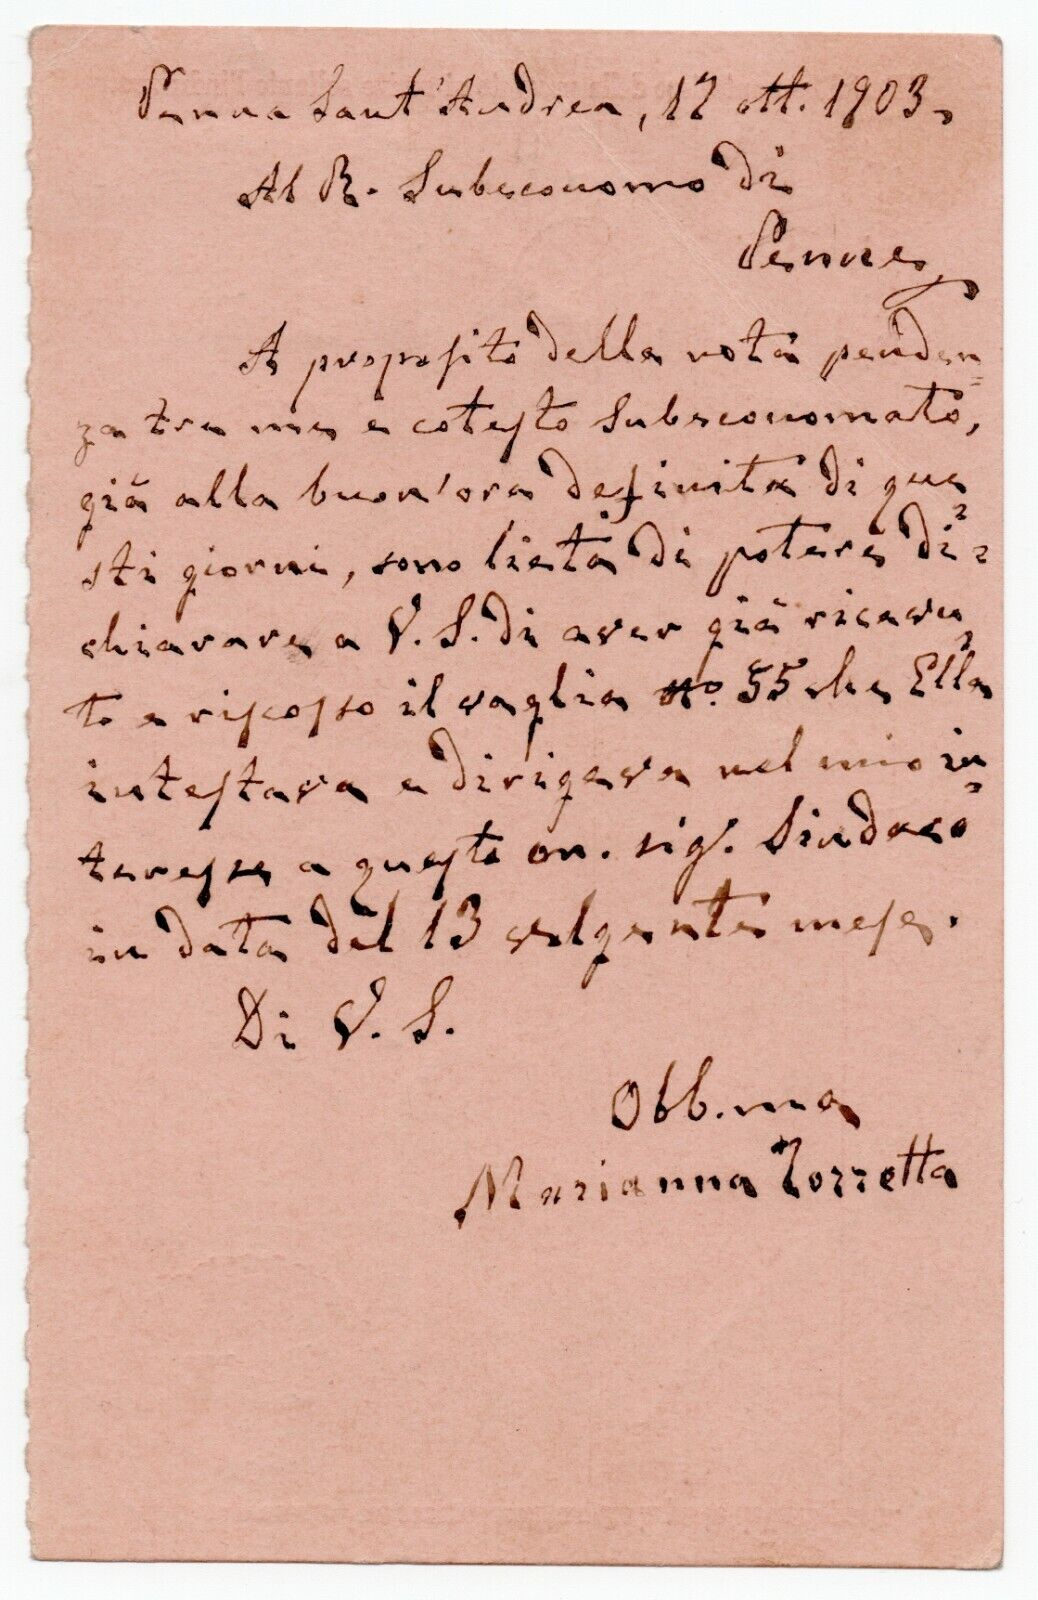 Penna Sant'Andrea, 17 ott. 1903.
Al R. Subeconomo di
Penne
A proposito della nota penden=
za tra me e cotesto Subeconomato,
già alla buon'ora definita di que=
sti giorni, sono lieta di potere di=
chiarare a V. S. di aver già ricevu=
to e riscosso il vaglia no. 55 che Ella
intestava e dirigeva nel mio in=
teresse a questo on. sig. Sindaco
in data del 13 volgente mese.
Di V. S.
Obb.ma
Marianna Torretta